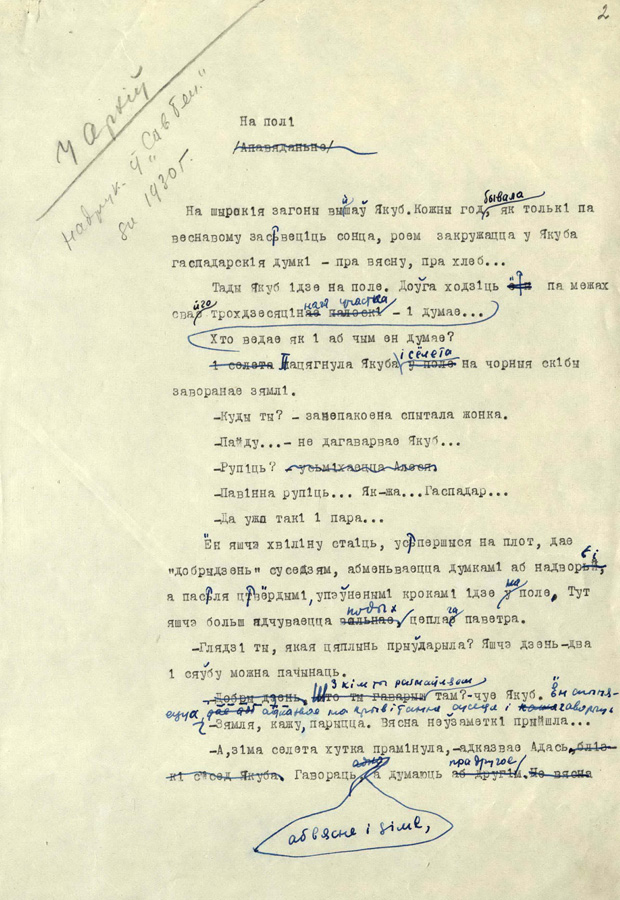 2
У Архіў
надрук. ў "Сав. Бел."
за 1930 г.
На полі
/Апавяданьне/
На шырокія загоны выйшаў Якуб. Кожны год, бывала як толькі па
веснавому засвеціць сонца, роем закружацца у Якуба
гаспадарскія думкі - пра вясну, пра хлеб...
Тады Якуб ідзе на поле. Доўга ходзіць ён па межах
сваёй трохдзесяціннае палоскі участка - і думае...
Хто ведае як і аб чым ен думае?
І селета Пацягнула Якуба і сёлета у поле на чорныя скібы
заворанае зямлі.
-Куды ты? - занепакоена спытала жонка.
-Пайду...- не дагаварвае Якуб...
-Рупіць? - усьміхаецца Алеся.
-Павінна рупіць... Як-жа...Гаспадар...
-Да ужо такі і пара...
Ён яшчэ хвіліну стаіць, усьпершыся на плот, дае
"добрыдзень" суседзям, абменьваецца думкамі аб надвор'і,
а пасля цвёрдымі, упэўненымі крокамі ідзе у на поле. Тут
яшчэ больш адчуваецца подых вольнае, цеплага паветра.
-Глядзі ты, якая цяплынь прыўдарыла? Яшчэ дзень-два
і сяўбу можна пачынаць.
-Добры дзень. Што ты гаворыш З кім ты размаўляеш там?-чуе Якуб. Ён
адказвае на прывітанне суседа і кажа гаворыць
-Зямля, кажу, парыцца. Вясна неўзаметкі прыйшла...
-А,зіма селета хутка прамінула,-адказвае Адась, бліз-
кі сусед Якуба. Гавораць адно а думаюць аб другім пра другое. Не вясна
аб вясне і зіме,